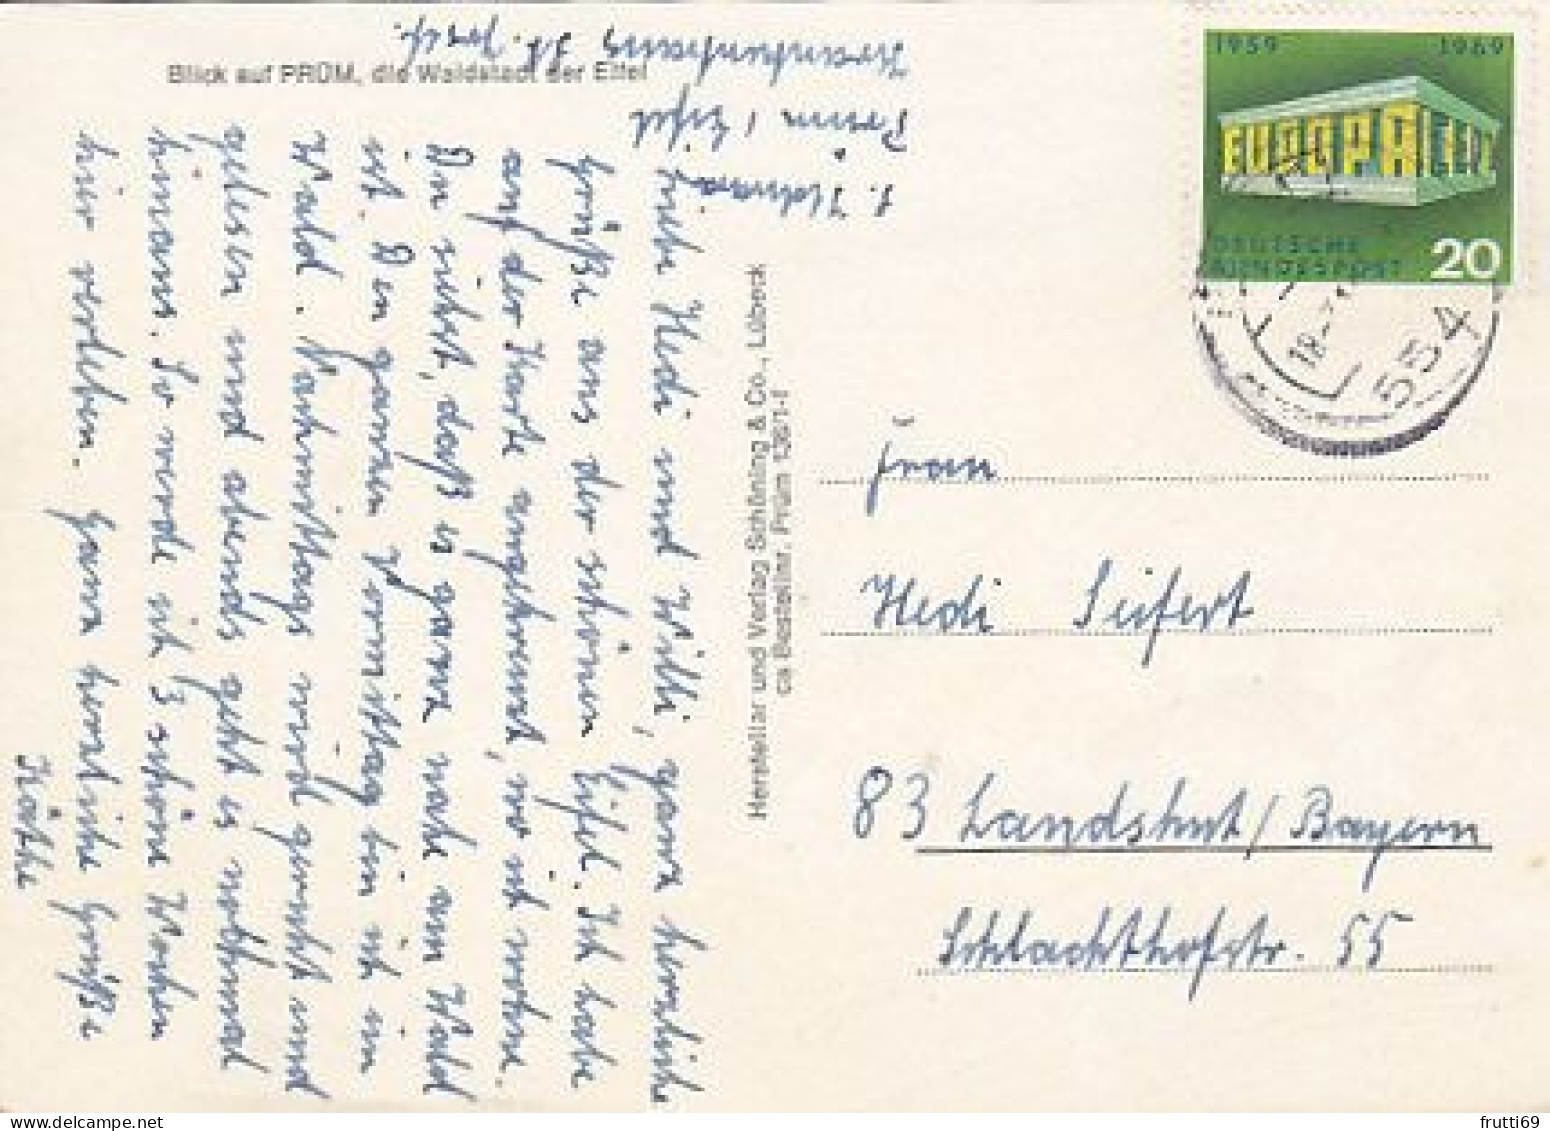 Blick auf PRÜM, die Waldstadt der Eifel
Krankenhaus St. Josef.
Prüm / Eifel
Liebe Hedi und Willi, ganz herzliche
Grüße aus der schönen Eifel. Ich habe
auf der Karte angekreuzt, wo ich wohne.
Du siehst, daß is ganz nahe am Wald
ist. Den ganzen Vormittag bin ich im
Wald. Nachmittags wird geruht und
gelesen und abends geht is nochmal
hinaus. So werde ich 3 schöne Wochen
hier verleben. Ganz herzliche Grüße
Käthe
Hersteller und Verlag Schöning & Co., Lübeck
ca Besteller. Prüm 136/1-f
1959 1969
EUROPA CEPT
DEUTSCHE
BUNDESPOST 20
18-
554
Frau
Hedi Seifert
83 Landshut/Bayern
Schlachthofstr. 55
frutti69